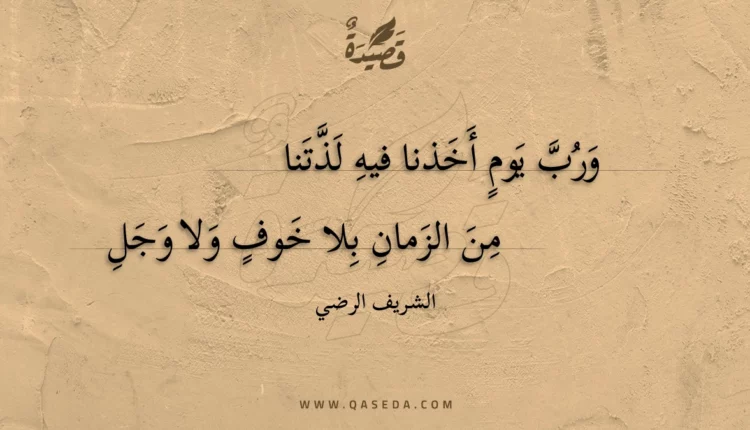 قَصِيدَةٌ
وَرُبَّ يَومٍ أَخَذنا فيهِ لَذَّتَنا
مِنَ الزَمانِ بِلا خَوفٍ وَلا وَجَلِ
الشريف الرضي
WWW.QASEDA.COM